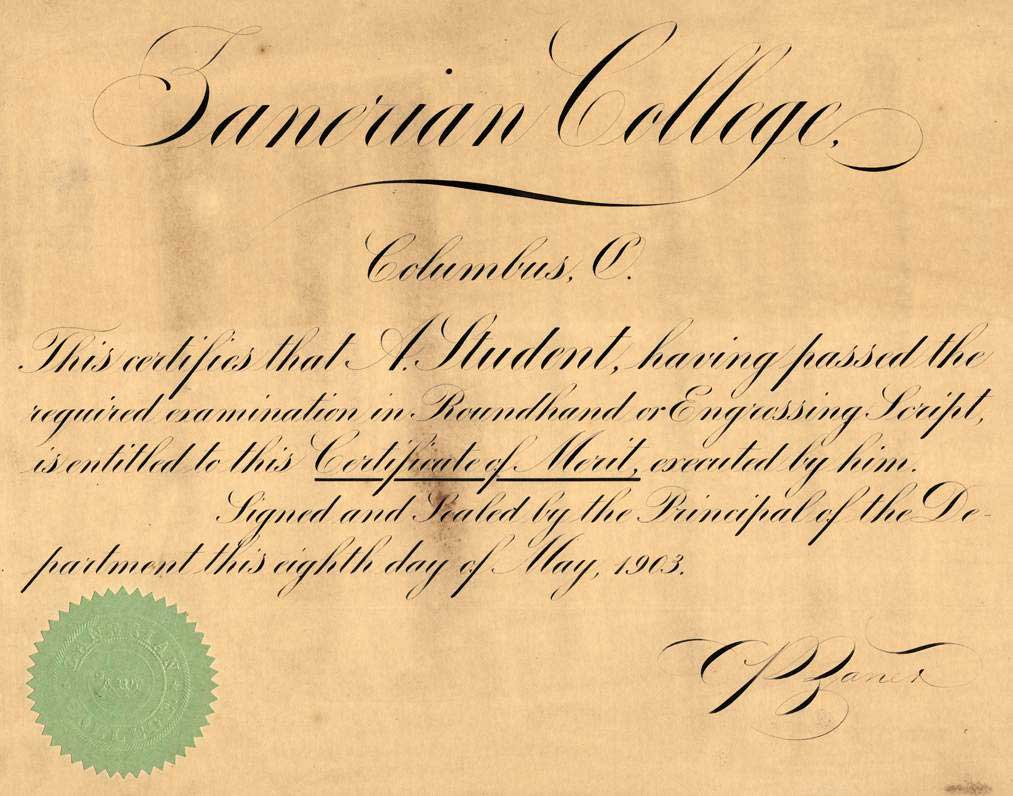 Zanerian College,
Columbus, O.
This certifies that A. Student, having passed the
required examination in Roundhand or Engrossing Script,
is entitled to this Certificate of Merit, executed by him.
Signed and Sealed by the Principal of the De-
partment this eighth day of May, 1903.
C P Zaner
ZANERIAN
ART
COLLEGE